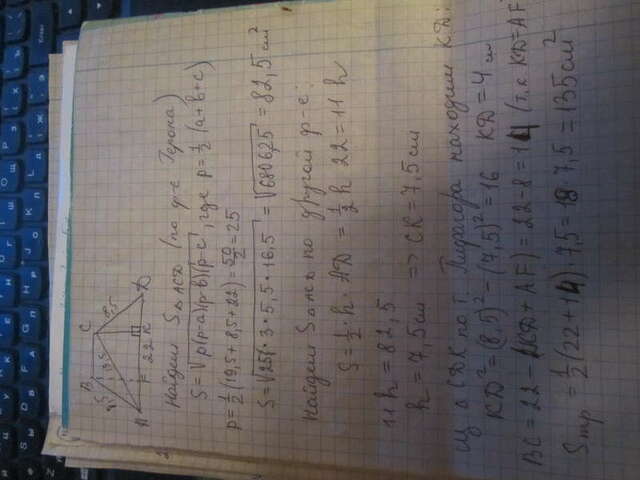 B C
8,5 19,5 8,5
A F 22 K D
Найдем S△ACD (по ф-е Герона)
S=√p(p-a)(p-b)(p-c), где p=½(a+b+c)
p=½(19,5+8,5+22)=50/2=25
S=√25·3·5,5·16,5 =√6806,25 =82,5 см²
Найдем S△ACD по другой ф-е:
S=½·h·AD = ½h 22=11 h
11h=82,5
h=7,5см => CK=7,5см
Из △CDK по т. Пифагора находим KD:
KD²=(8,5)²-(7,5)²=16 KD=4 см
BC=22-(KD+AF)=22-8=14 (т.к KD=AF
Sтр =½(22+14)·7,5=18·7,5=135см²